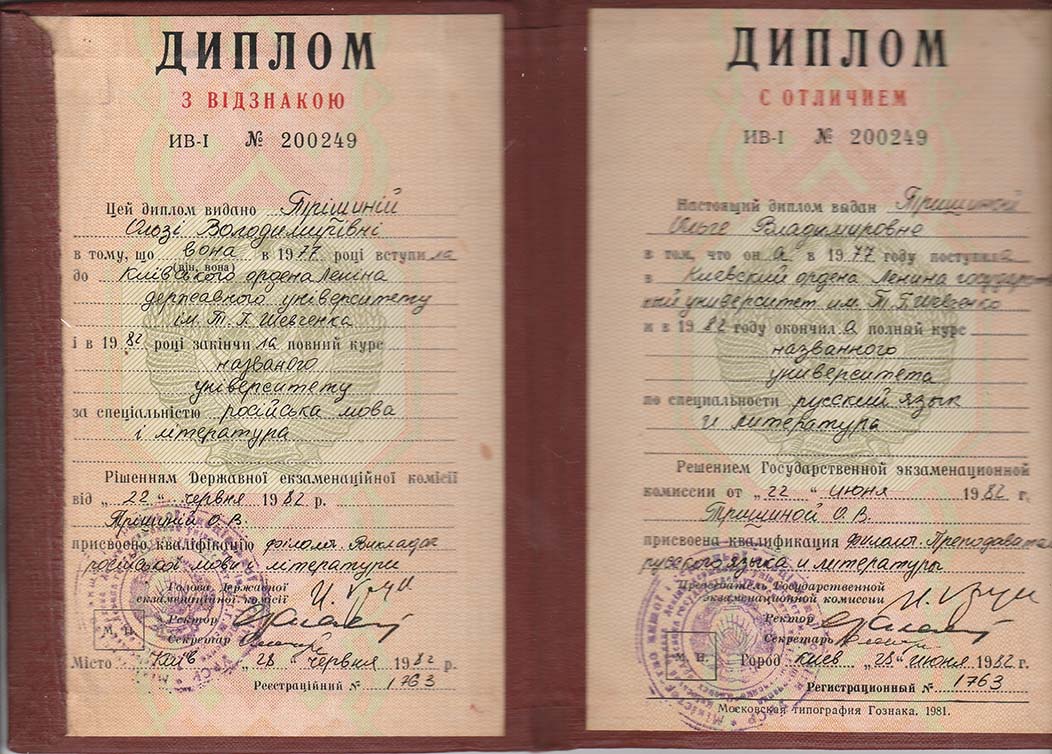 ДИПЛОМ
З ВІДЗНАКОЮ
ИВ-I № 200249
Цей диплом видано Трішиній
Ользі Володимирівні
в тому, що вона в 1977 році вступила
(він, вона)
до Київського ордена Леніна
державного університету
ім. Т. Г. Шевченка
і в 1982 році закінчила повний курс
названого
університету
за спеціальністю російська мова
і література
Рішенням Державної екзаменаційної комісії
від „22“ червня 1982 р.
Трішиній О. В.
присвоєно кваліфікацію філолог. Викладач
російської мови і літератури
Голова Державної
екзаменаційної комісії
Ректор
Секретар
М. П.
Місто Київ „28“ червня 1982 р.
Реєстраційний № 1763
ДИПЛОМ
С ОТЛИЧИЕМ
ИВ-I № 200249
Настоящий диплом выдан Тришиной
Ольге Владимировне
в том, что она в 1977 году поступила
в Киевский ордена Ленина государствен
ный университет им. Т. Г. Шевченко
и в 1982 году окончила полный курс
названного
университета
по специальности русский язык
и литература
Решением Государственной экзаменационной
комиссии от „22“ июня 1982 г.
Тришиной О. В.
присвоена квалификация филолог. Преподаватель
русского языка и литературы
Председатель Государственной
экзаменационной комиссии
Ректор
Секретарь
М. П.
Город Киев „28“ июня 1982 г.
Регистрационный № 1763
Московская типография Гознака. 1981.